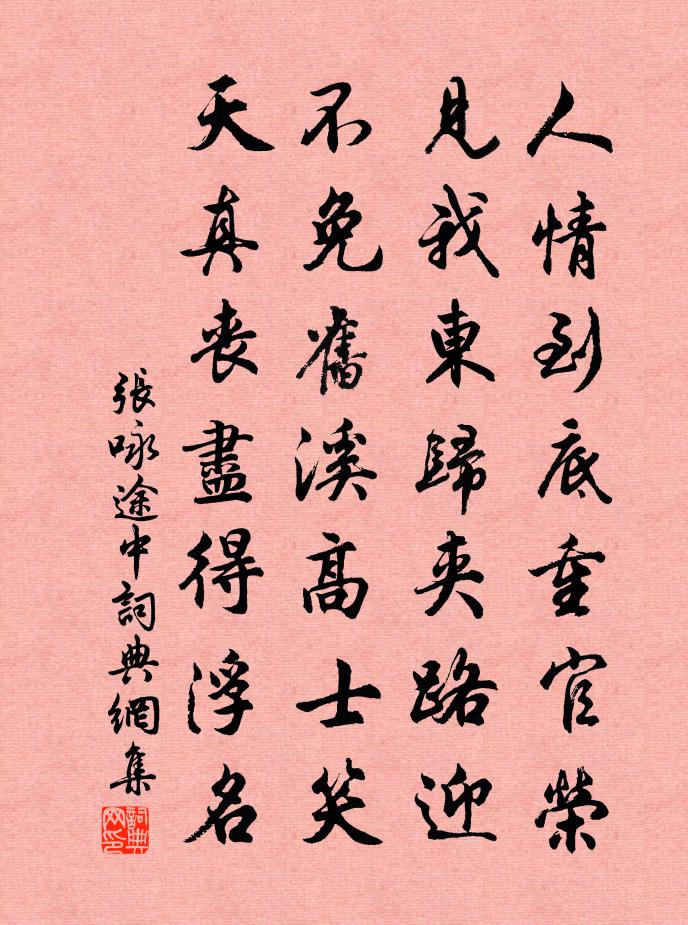 人情到底重官榮
見我東歸夾路迎
不免舊溪高士笑
天真喪盡得浮名
張咏途中詞典網集
詞典网印